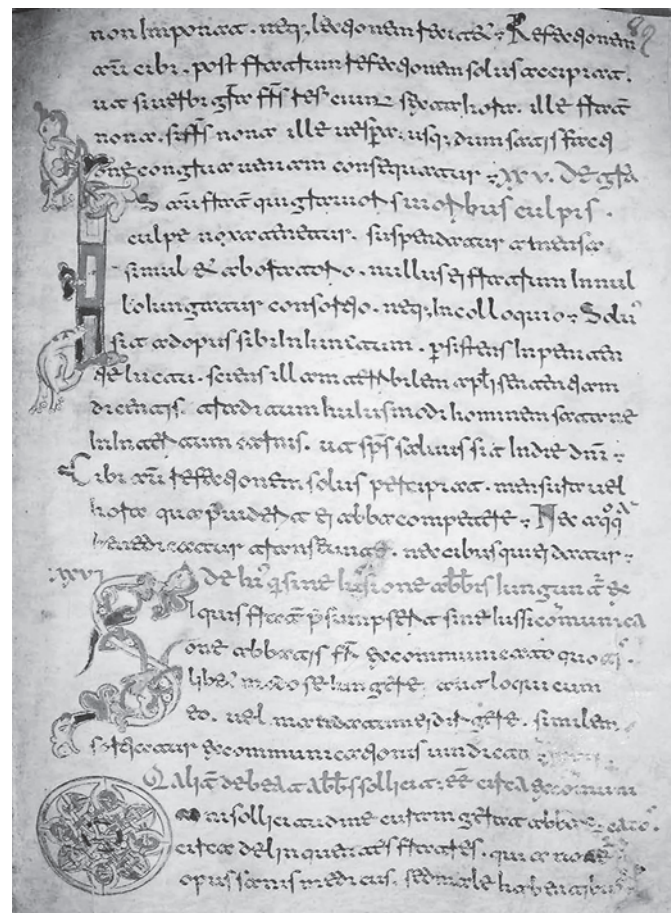 non Imponat. neq; lectionem recitet; Refectionem
aū cibi. post fratrum refectionem solus accipiat.
ut si uerbi grā frs reficiunt sexta hora. ille frater
nona. si frs nona ille uespera. usq; dum satisfacti
one congrua ueniam consequatur; XXV. De gra
Is aū frater qui grauioris uioribus culpis.
culpe noxa tenetur. suspendatur a mensa
simul & ab oratorio. nullus ei fratrum In nul
lo Iungatur consortio. neq; In colloquio; Solus
sit ad opus sibi Iniunctum. psistens In peniten
tie luctu. sciens illam terribilem apli sententiam
dicentis. traditum huiusmodi hominem satane
In Interitum carnis. ut sps saluus sit In die dni;
Cibi aū refectionem solus percipiat. mensura uel
hora qua puiderit ei abba competere; Nec a qqā
benedicatur transeunte. nec cibus qui ei datur;
XXVI De his q sine Iussione abbis Iungunt se
Si quis frater psumpserit sine Iussi
one abbatis fri excommunicato quoli
libet modo se Iungere. aut loqui cum
eo. uel mandatum ei dirigere. similem
sortiatur excommunicationis uindictam
Qualit debeat abbs sollicit ēē circa excommuni
Omni sollicitudine curam gerat abbas
circa delinquentes fratres. quia non ē
opus sanis medicus. sed male habentibus